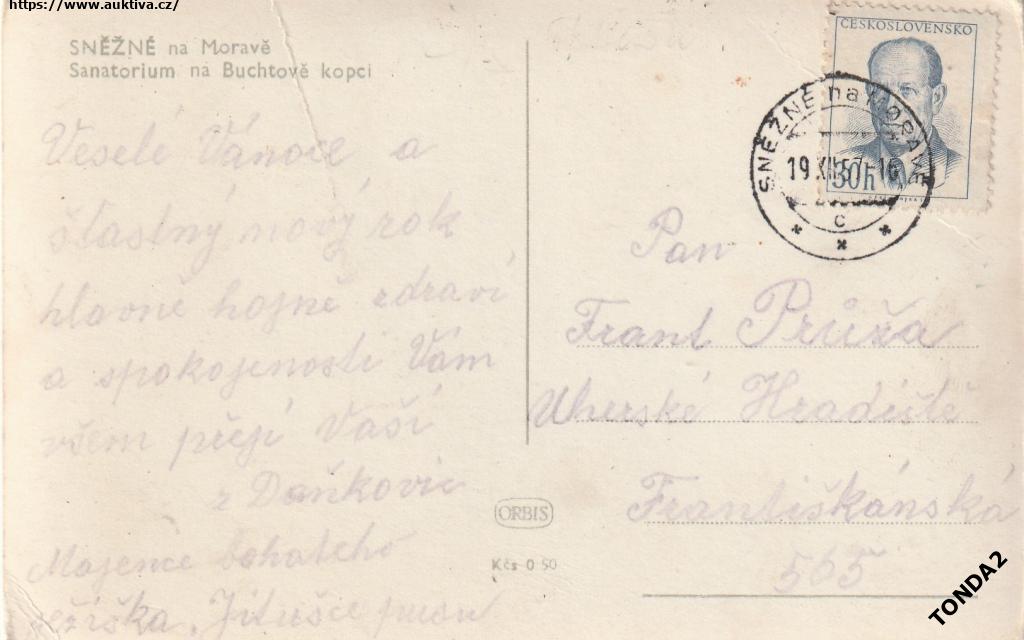 https://www.auktiva.cz/
SNĚŽNÉ na Moravě
Sanatorium na Buchtově kopci
Veselé Vánoce a
šťastný nový rok
hlavně hojně zdraví
a spokojenosti Vám
všem přejí Vaší
z Daňkovic
Majence bohatého
ježíška, Jitušce pusu
ČESKOSLOVENSKO
30h
SNĚŽNÉ na MORAVĚ
19 XII 57-16
C
Pan
Frant Průža
Uherské Hradiště
Františkánská
565
ORBIS
Kčs 0 50
TONDA2